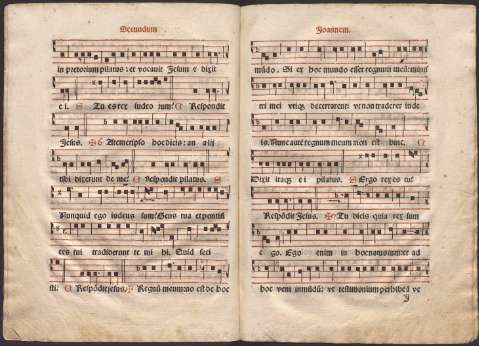 Secundum
in pretorium pilatus: et vocavit Jesum e dixit
ei. Tu es rex iudeo rum? Respondit
Jesus. A temetipso hoc dicis: an alij
tibi dixerunt de me? Respondit pilatus.
Nunquid ego iudeus sum? Gens tua et pontifi
ces tui tradiderunt te mi hi. Quid feci
sti: Respōdit jesus. Regnū meum: nō est de hoc
Joannem.
mūdo. Si ex hoc mundo esset regnum meū:
tri mei utiq decertarent: ut non traderer iude
is. Nunc autē regnum meum non est hinc.
Dixit itaq ei pilatus. Ergo rex es tu?
Respōdit Jesus. Tu dicis quia rex sum
ego. Ego enim in hoc natus sum: et ad
hoc veni in mūdū: ut testimonium perhibeā ve